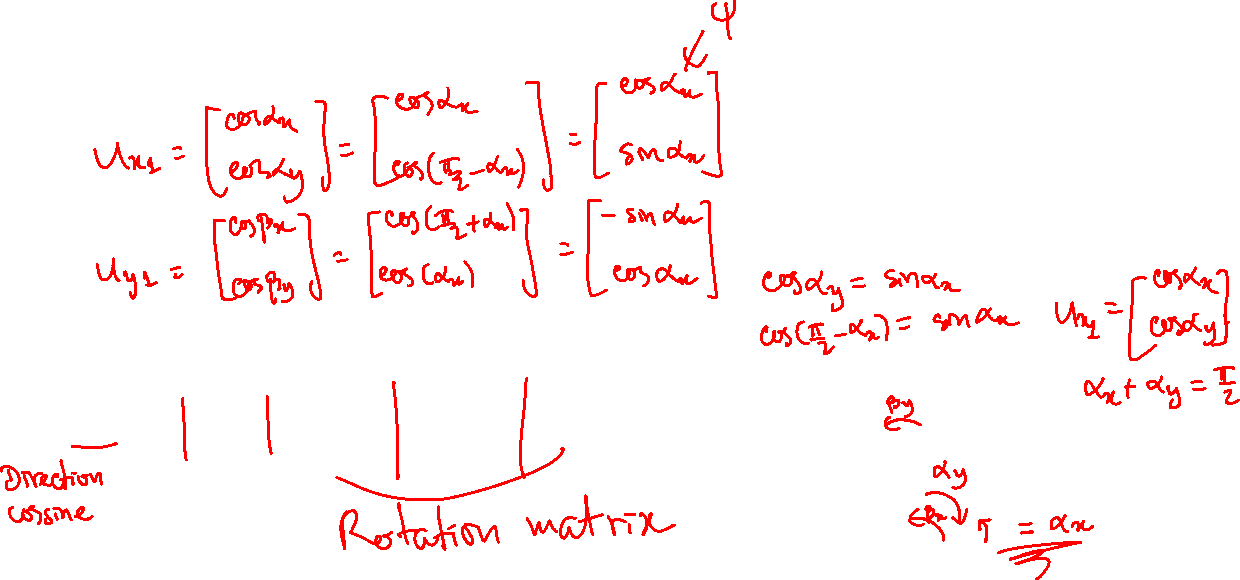 ψ
u_{x1} = [cosα_x cosα_y] = [cosα_x cos(π/2 - α_x)] = [cosα_x sinα_x]
u_{y1} = [cosβ_x cosβ_y] = [cos(π/2 + α_x) cos(α_x)] = [-sinα_x cosα_x]
cosα_y = sinα_x
cos(π/2 - α_x) = sinα_x
u_{x1} = [cosα_x cosα_y]
α_x + α_y = π/2
β_y
Direction
cossine
Rotation matrix
α_y
β_x
= α_x